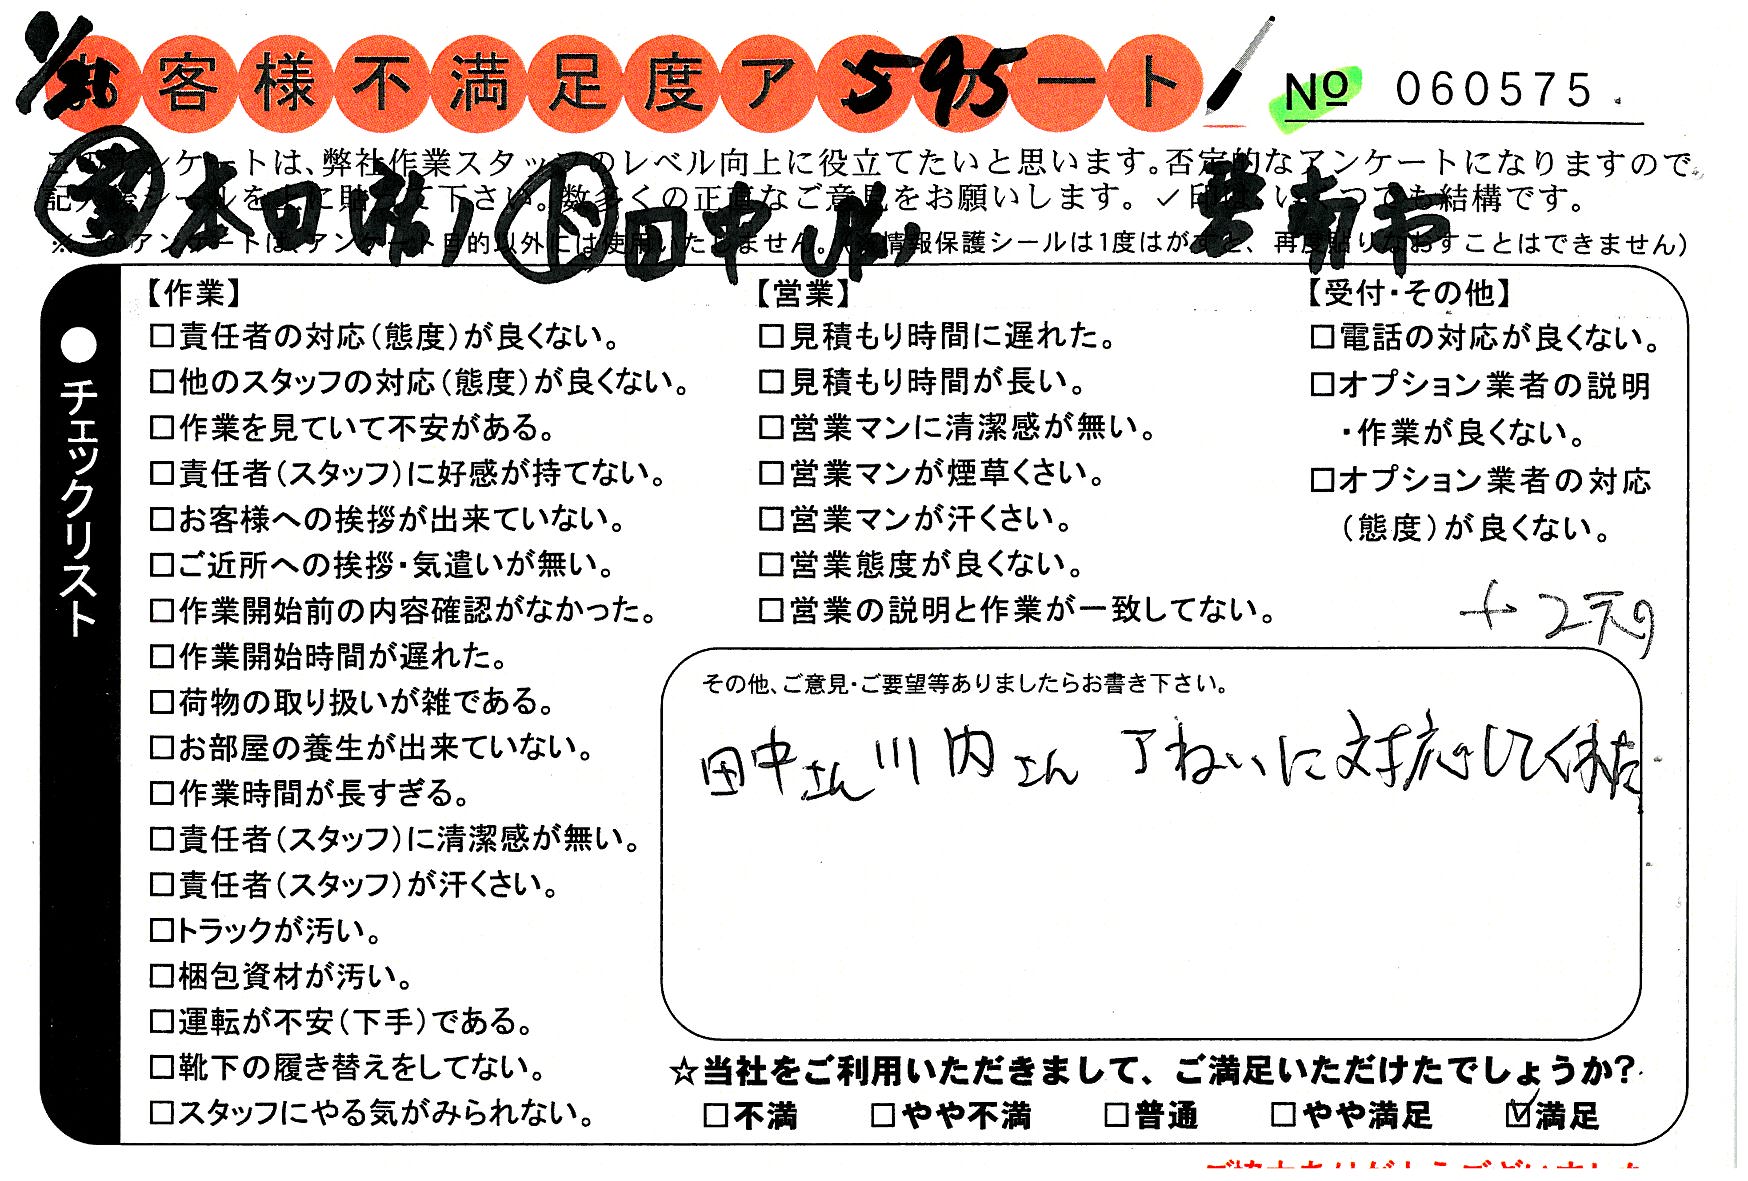 1/26 お客様不満足度アンケート 595 No 060575
このアンケートは、弊社作業スタッフのレベル向上に役立てたいと思います。否定的なアンケートになりますので、
記入後シールを上に貼って下さい。数多くの正直なご意見をお願いします。✓印はいくつでも結構です。
※このアンケートは、アンケート目的以外には使用いたしません。(情報保護シールは1度はがすと、再度貼りなおすことはできません)
営 本田 下 田中 雲南市
●チェックリスト
【作業】
□責任者の対応(態度)が良くない。
□他のスタッフの対応(態度)が良くない。
□作業を見ていて不安がある。
□責任者(スタッフ)に好感が持てない。
□お客様への挨拶が出来ていない。
□ご近所への挨拶・気遣いが無い。
□作業開始前の内容確認がなかった。
□作業開始時間が遅れた。
□荷物の取り扱いが雑である。
□お部屋の養生が出来ていない。
□作業時間が長すぎる。
□責任者(スタッフ)に清潔感が無い。
□責任者(スタッフ)が汗くさい。
□トラックが汚い。
□梱包資材が汚い。
□運転が不安(下手)である。
□靴下の履き替えをしてない。
□スタッフにやる気がみられない。
【営業】
□見積もり時間に遅れた。
□見積もり時間が長い。
□営業マンに清潔感が無い。
□営業マンが煙草くさい。
□営業マンが汗くさい。
□営業態度が良くない。
□営業の説明と作業が一致してない。
【受付・その他】
□電話の対応が良くない。
□オプション業者の説明
・作業が良くない。
□オプション業者の対応
(態度)が良くない。
その他、ご意見・ご要望等ありましたらお書き下さい。
田中さん 川内さん 丁ねいに対応してくれた
☆当社をご利用いただきまして、ご満足いただけたでしょうか?
□不満 □やや不満 □普通 □やや満足 ☑満足
ご協力ありがとうございました